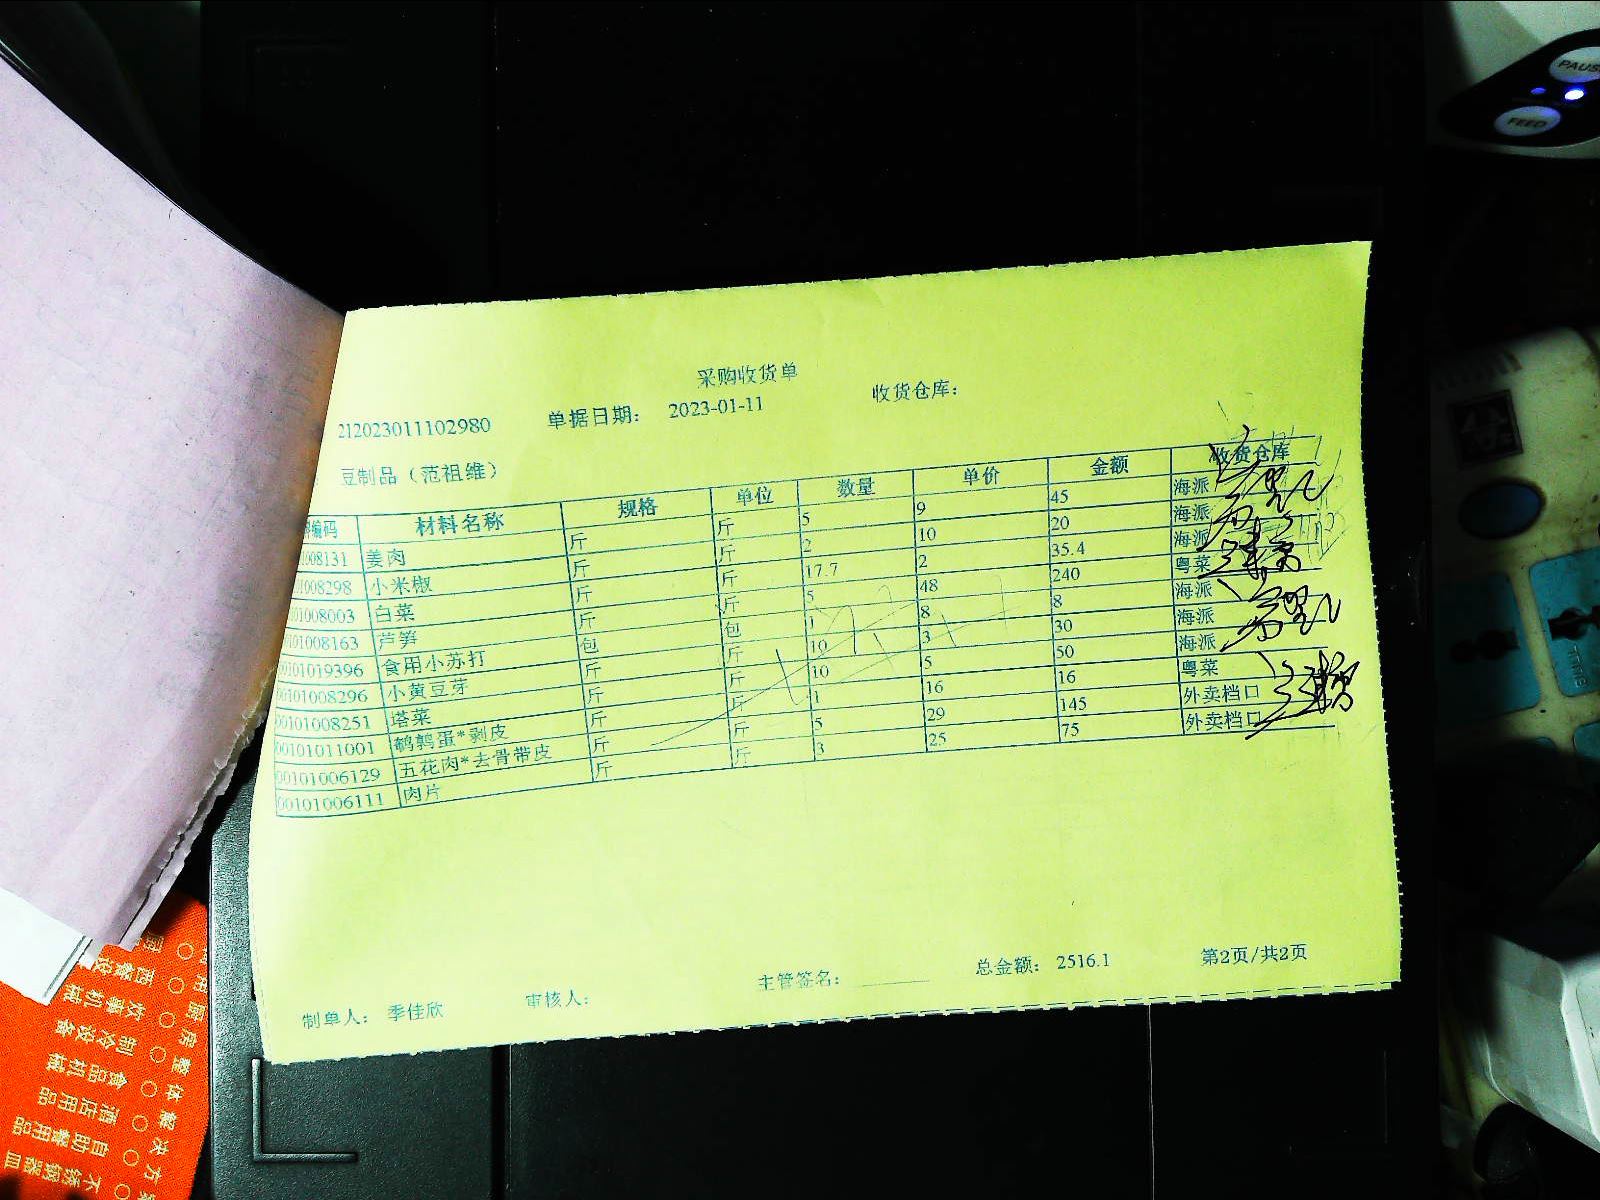 采购收货单
212023011102980 单据日期: 2023-01-11 收货仓库:
豆制品（范祖维）
编码 材料名称 规格 单位 数量 单价 金额 收货仓库
008131 姜肉 斤 斤 5 9 45 海派
01008298 小米椒 斤 斤 2 10 20 海派
0101008003 白菜 斤 斤 17.7 2 35.4 海派
0101008163 芦笋 斤 斤 5 48 240 粤菜
00101019396 食用小苏打 包 包 1 8 8 海派
00101008296 小黄豆芽 斤 斤 10 3 30 海派
00101008251 塔菜 斤 斤 10 5 50 海派
00101011001 鹌鹑蛋*剥皮 斤 斤 1 16 16 粤菜
00101006129 五花肉*去骨带皮 斤 斤 5 29 145 外卖档口
00101006111 肉片 斤 斤 3 25 75 外卖档口
制单人: 季佳欣 审核人: 主管签名: 总金额: 2516.1 第2页/共2页
PAUS
FEED
整体解决方
西餐设
炊事机械
制冷设备
食品机械
酒店用品
自助餐用品
不锈钢器皿